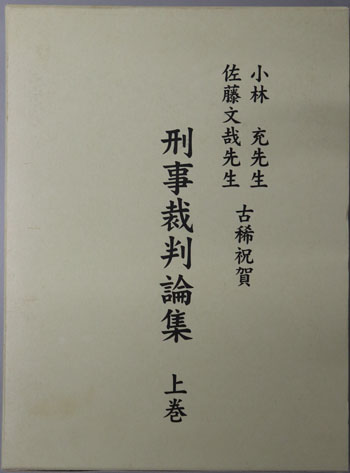 小林 充先生
佐藤文哉先生 古稀祝賀
刑事裁判論集 上巻